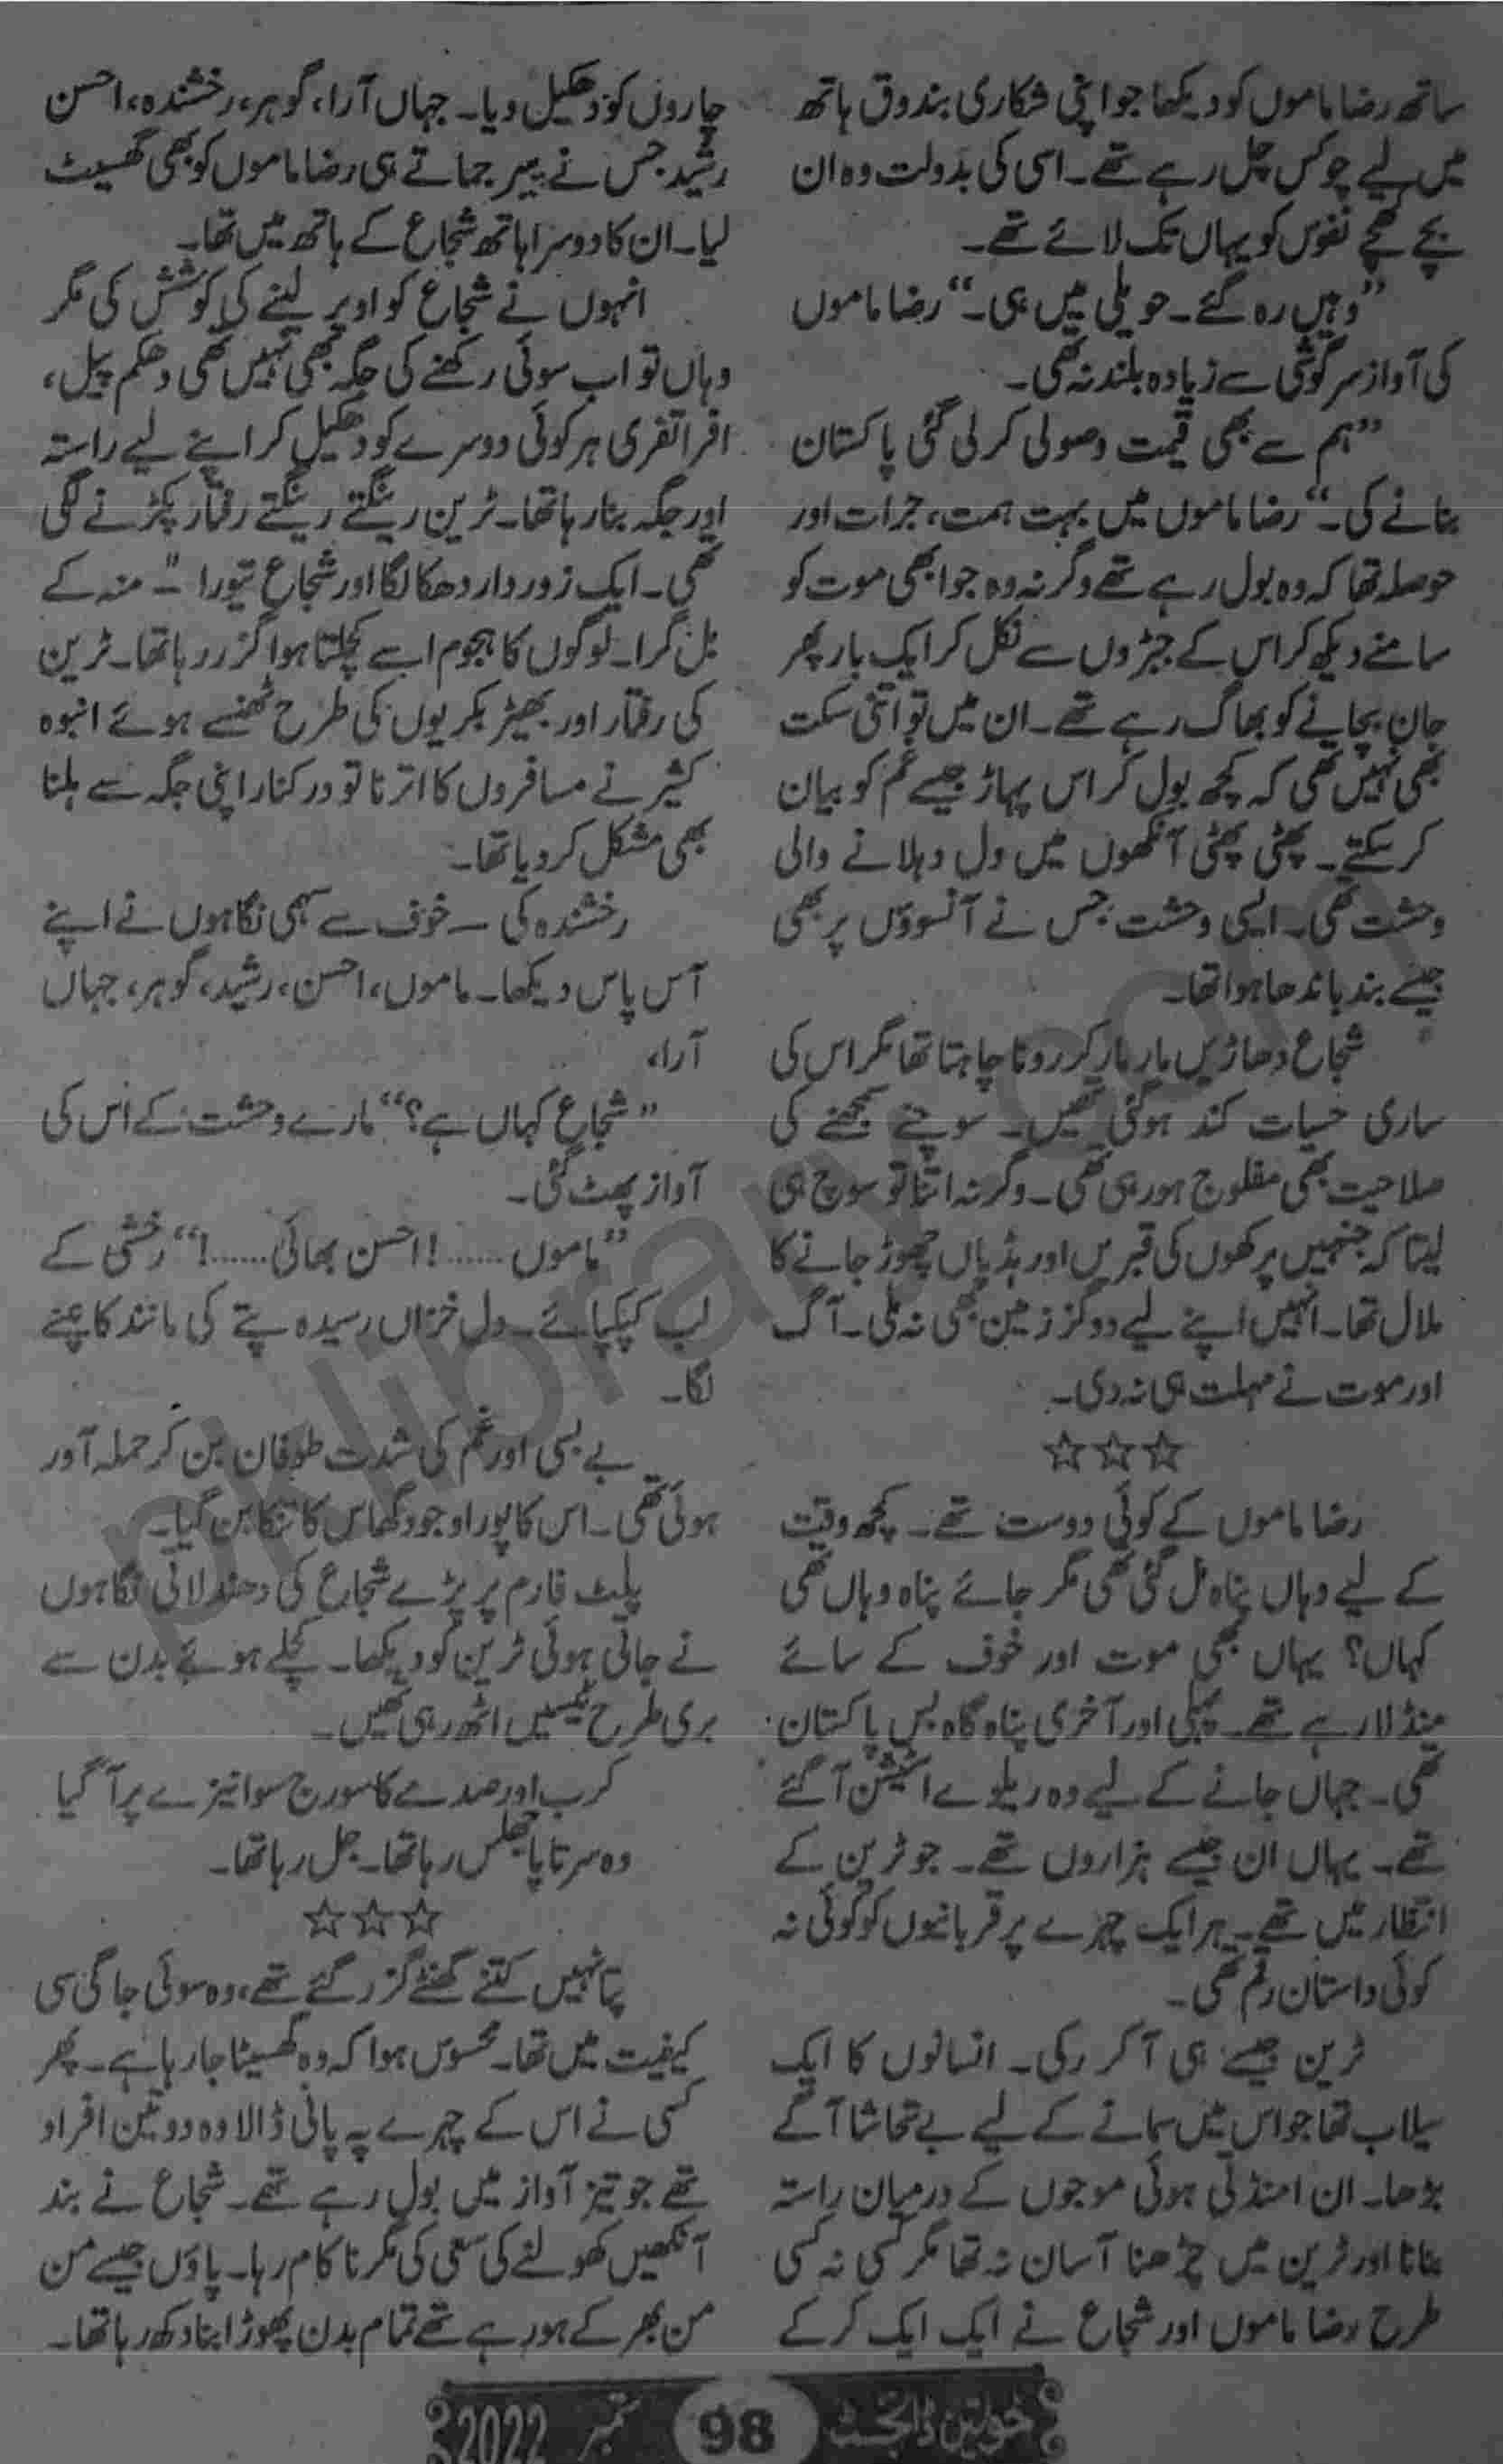 ساتھ رضا ماموں کو دیکھا جو اپنی شکاری بندوق ہاتھ
میں لیے چوکس چل رہے تھے۔ اسی کی بدولت وہ ان
بچے کھچے نفوس کو یہاں تک لائے تھے۔
”وہیں رہ گئے۔ حویلی میں ہی۔“ رضا ماموں
کی آواز سرگوشی سے زیادہ بلند نہ تھی۔
”ہم سے بھی قیمت وصولی کر لی گئی پاکستان
بنانے کی۔“ رضا ماموں میں بہت ہمت، جرات اور
حوصلہ تھا کہ وہ بول رہے تھے وگرنہ وہ جو ابھی موت کو
سامنے دیکھ کر اس کے جبڑوں سے نکل کر ایک بار پھر
جان بچانے کو بھاگ رہے تھے۔ ان میں تو اتنی سکت
بھی نہیں تھی کہ کچھ بول کر اس پہاڑ جیسے غم کو بیان
کر سکتے۔ پھٹی پھٹی آنکھوں میں دل دہلانے والی
وحشت تھی۔ ایسی وحشت جس نے آنسوؤں پر بھی
جیسے بند باندھا ہوا تھا۔
شجاع دھاڑیں مار مار کر رونا چاہتا تھا مگر اس کی
ساری حسیات کند ہو گئی تھیں۔ سوچنے سمجھنے کی
صلاحیت بھی مفلوج ہو رہی تھی۔ وگرنہ اتنا تو سوچ ہی
لیتا کہ جنہیں پرکھوں کی قبریں اور ہڈیاں چھوڑ جانے کا
ملال تھا۔ انہیں اپنے لیے دو گز زمین بھی نہ ملی۔ آگ
اور موت نے مہلت ہی نہ دی۔
☆☆☆
رضا ماموں کے کوئی دوست تھے۔ کچھ وقت
کے لیے وہاں پناہ مل گئی تھی مگر جائے پناہ وہاں تھی
کہاں؟ یہاں بھی موت اور خوف کے سائے
منڈلا رہے تھے۔ پہلی اور آخری پناہ گاہ بس پاکستان
تھی۔ جہاں جانے کے لیے وہ ریلوے اسٹیشن آ گئے
تھے۔ یہاں ان جیسے ہزاروں تھے۔ جو ٹرین کے
انتظار میں تھے۔ ہر ایک چہرے پر قربانیوں کو کوئی نہ
کوئی داستان رقم تھی۔
ٹرین جیسے ہی آ کر رکی۔ انسانوں کا ایک
سیلاب تھا جو اس میں سمانے کے لیے بے تحاشا آگے
بڑھا۔ ان امنڈتی ہوئی موجوں کے درمیان راستہ
بنانا اور ٹرین میں چڑھنا آسان نہ تھا مگر کسی نہ کسی
طرح رضا ماموں اور شجاع نے ایک ایک کر کے
چاروں کو دھکیل دیا۔ جہاں آرا، گوہر، رخشندہ، احسن
رشید جس نے پیر جماتے ہی رضا ماموں کو بھی گھسیٹ
لیا۔ ان کا دوسرا ہاتھ شجاع کے ہاتھ میں تھا۔
انہوں نے شجاع کو اوپر لینے کی کوشش کی مگر
وہاں تو اب سوئی رکھنے کی جگہ بھی نہیں تھی دھکم پیل،
افراتفری ہر کوئی دوسرے کو دھکیل کر اپنے لیے راستہ
اور جگہ بنا رہا تھا۔ ٹرین رینگتے رینگتے رفتار پکڑنے لگی
تھی۔ ایک زور دار دھکا لگا اور شجاع تیورا ۔ منہ کے
بل گرا۔ لوگوں کا ہجوم اسے کچلتا ہوا گزر رہا تھا۔ ٹرین
کی رفتار اور بھیڑ بکریوں کی طرح ٹھنسے ہوئے انبوہ
کثیر نے مسافروں کا اترنا تو درکنار اپنی جگہ سے ہلنا
بھی مشکل کر دیا تھا۔
رخشندہ کی ۔ خوف سے سہمی نگاہوں نے اپنے
آس پاس دیکھا۔ ماموں، احسن، رشید، گوہر، جہاں
آرا،
”شجاع کہاں ہے؟“ مارے وحشت کے اس کی
آواز پھٹ گئی۔
”ماموں......! احسن بھائی......!“ رخشی کے
لب کپکپائے۔ دل خزاں رسیدہ پتے کی مانند کانپنے
لگا۔
بے بسی اور غم کی شدت طوفان بن کر حملہ آور
ہوئی تھی۔ اس کا پورا وجود گھاس کا تنکا بن گیا۔
پلیٹ فارم پر پڑے شجاع کی دھندلائی نگاہوں
نے جاتی ہوئی ٹرین کو دیکھا۔ کچلے ہوئے بدن سے
بری طرح ٹیسیں اٹھ رہی تھیں۔
کرب اور صدمے کا سورج سوا نیزے پر آ گیا
وہ سرتاپا جھلس رہا تھا۔ جل رہا تھا۔
☆☆☆
پتا نہیں کتنے گھنٹے گزر گئے تھے، وہ سوئی جاگی سی
کیفیت میں تھا۔ محسوس ہوا کہ وہ گھسیٹا جا رہا ہے۔ پھر
کسی نے اس کے چہرے پہ پانی ڈالا وہ دو تین افراد
تھے جو تیز آواز میں بول رہے تھے۔ شجاع نے بند
آنکھیں کھولنے کی سعی کی مگر ناکام رہا۔ پاؤں جیسے من
من بھر کے ہو رہے تھے تمام بدن پھوڑا بنا دکھ رہا تھا۔
خواتین ڈائجسٹ 98 ستمبر 2022
pklibrary.com